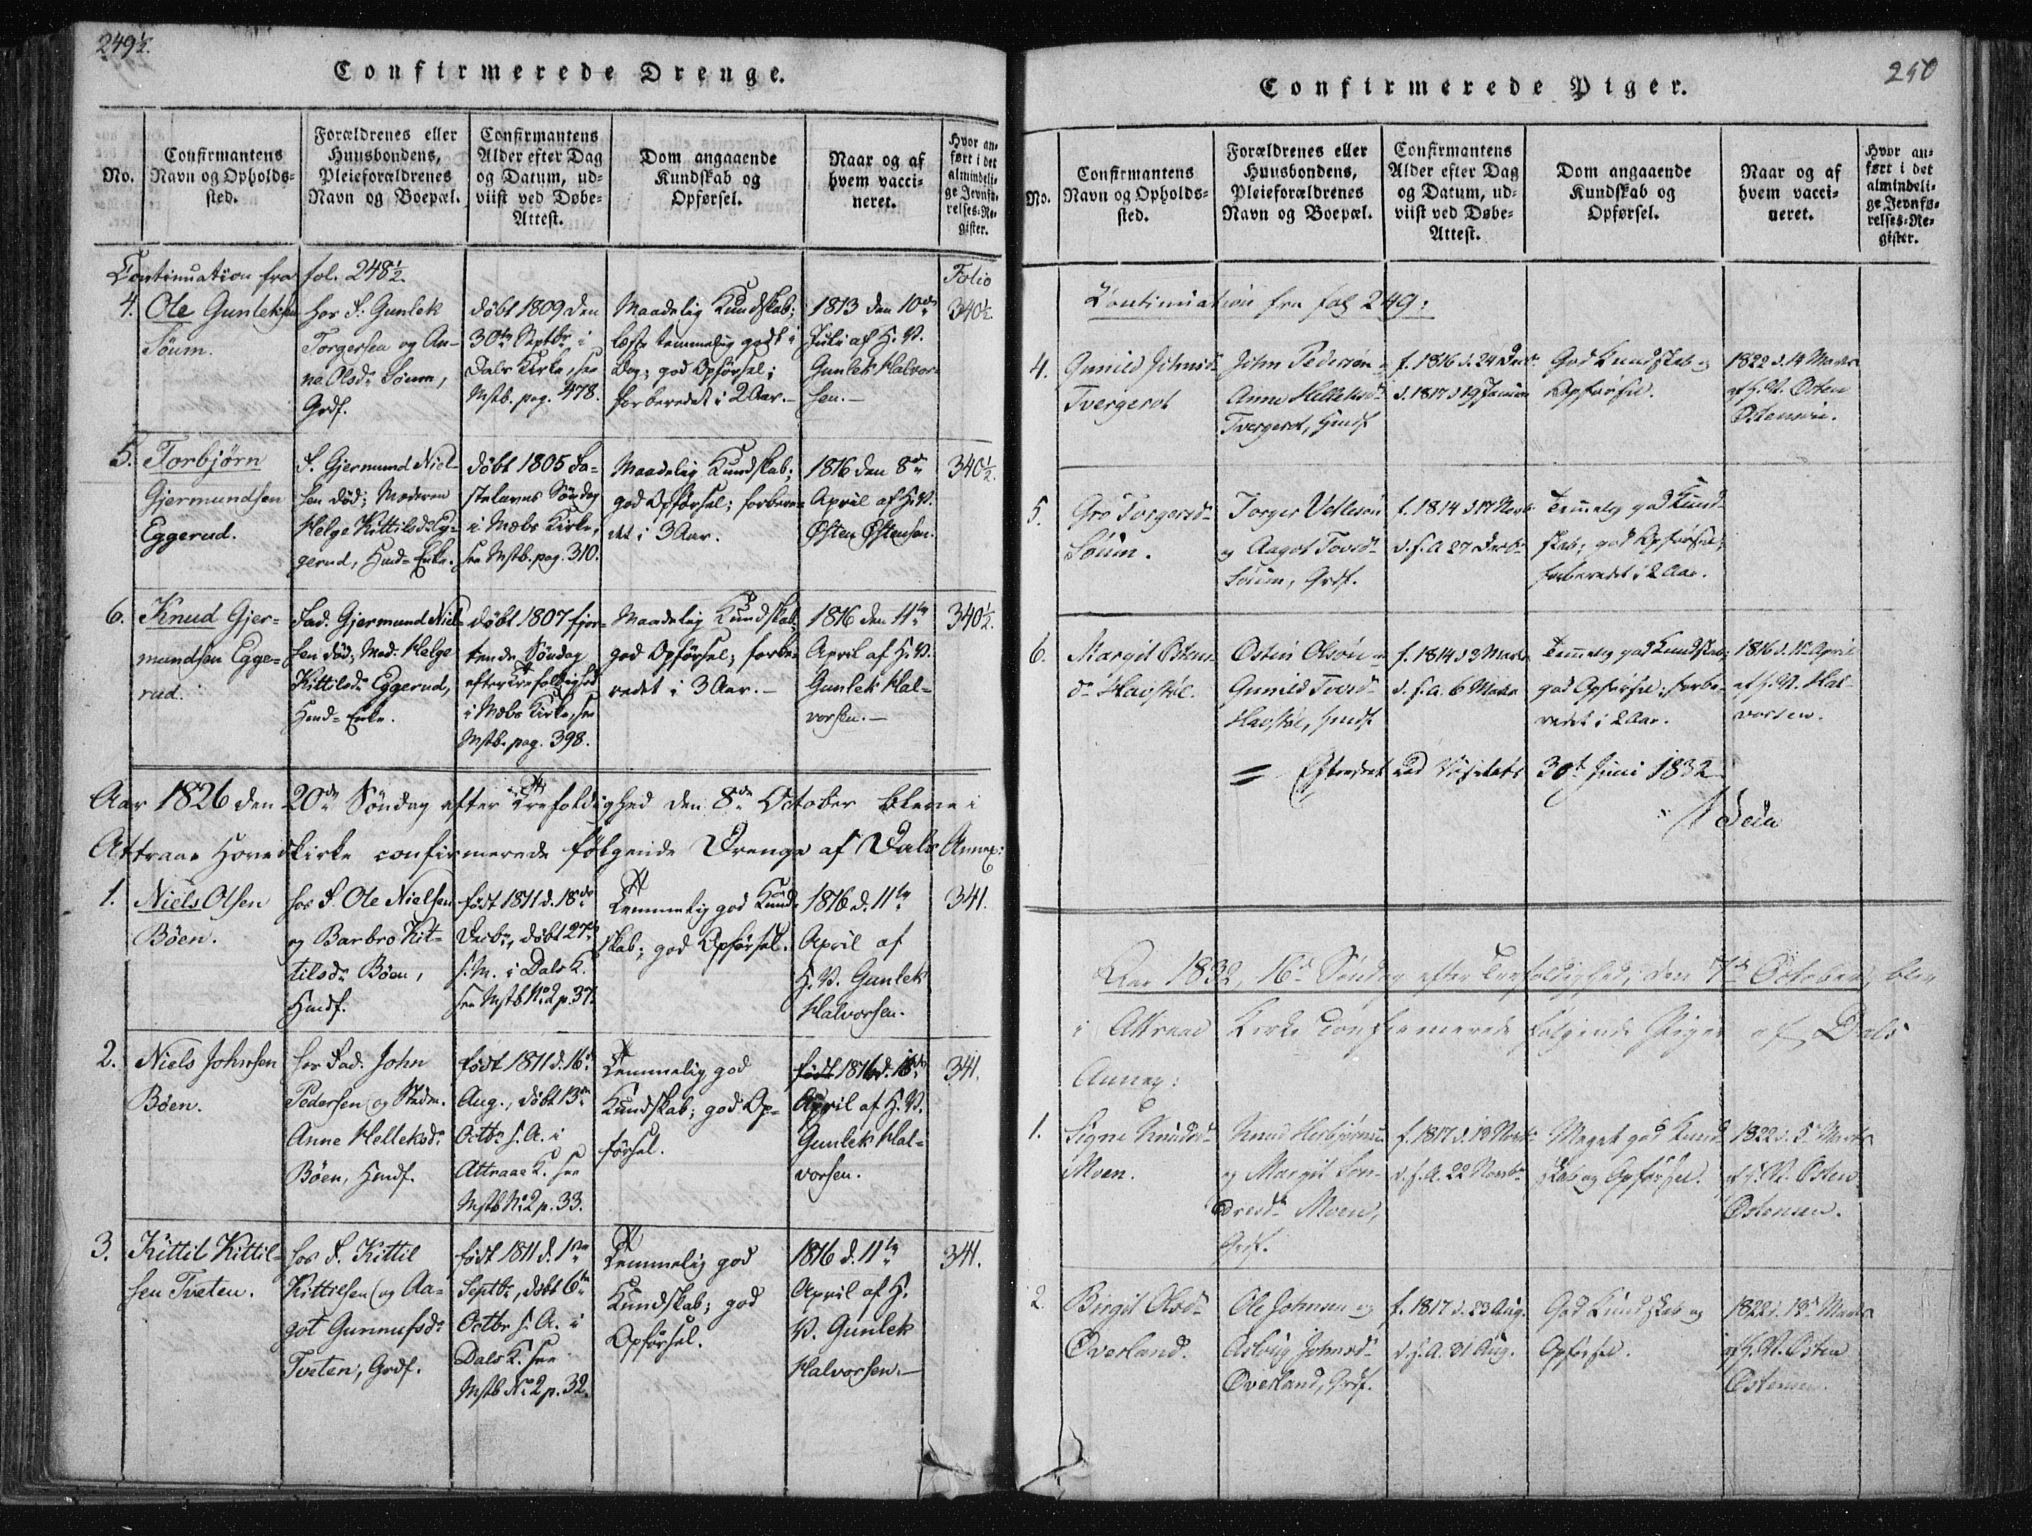 249½.
Confirmerede Drenge.
No.
Confirmantens
Navn og Opholds-
sted.
Forældrenes eller
Huusbondens,
Pleieforældrenes
Navn og Boepæl.
Confirmantens
Alder efter Dag
og Datum, ud-
viist ved Døbe-
Attest.
Dom angaaende
Kundskab og
Opførsel.
Naar og af
hvem vacci-
neret.
Hvor an-
ført i det
almindeli-
ge Jevnfø-
relses-Re-
gister.
Continuation fra fol. 248½
Folio
4.
Ole Gunleksen
Söum.
hos F. Gunlek
Torgersen og An-
ne Olsdr Söum,
Grdf.
döbt 1809 den
30te Septbr. i
Dals Kirke, see
Mstb. pag. 478.
Maadelig Kundskab;
læste temmelig godt i
Bog; god Opförsel;
forberedet i 2 Aar.
1813 den 10de
Juli af H. V.
Gunlek Halvor-
sen.
340½.
5.
Torbjörn
Gjermundsen
Eggerud.
F. Gjermund Niel-
sen död; Moderen
Helge Kittilsdr Eg-
gerud, Hmd= Enke.
döbt 1805 Fa-
stelavns Söndag
i Mæbs Kirke,
see Mstb. pag. 310.
Maadelig Kundskab;
god Opförsel; forbere-
det i 3 Aar.
1816 den 8de
April af H. V.
Østen Østensen.
340½.
6.
Knud Gjer-
mundsen Egge-
rud.
Fad. Gjermund Niel-
sen död; Mod. Helge
Kittilsdr Eggerud,
Hmd= Enke.
döbt 1807 fjor-
tende Söndag
efter Trefoldighed
i Mæbs Kirke, see
Mstb. pag. 398.
Maadelig Kundskab,
god Opförsel; forbe-
redet i 3 Aar.
1816 den 11te
April af H. V.
Gunlek Hal-
vorsen.
340½.
Aar 1826 den 20de Söndag efter Trefoldighed den 8de October bleve i
Attraae Hovedkirke confirmerede fölgende Drenge af Dals Annex:
1.
Niels Olsen
Böen.
hos F. Ole Nielsen
og Barbro Kit-
tilsdr Böen,
Hmdf.
födt 1811 d. 18de
Decbr, döbt 27de
s. M. i Dals K.
see Mstb No. 2 p. 37.
Temmelig god Kund-
skab; god Opförsel.
1816 d. 11te
April af
H. V. Gunlek
Halvorsen.
341.
2.
Niels Johnsen
Böen.
hos Fad. John
Pedersen og Stedm.
Anne Helleksdr
Böen, Hmdf.
födt 1811 d. 16de
Aug., döbt 13de
Octbr s. A. i
Attraae K. see
Mstb No. 2 p. 33.
Temmelig god
Kundskab; god Op-
försel.
födt 1816 d.
April af H. V.
Gunlek Hal-
vorsen.
341.
3.
Kittil Kittil-
sen Tveten.
hos F. Kittil
Kittilsen og Aa-
got Gunnufsdr
Tveten, Grdf.
födt 1811 d. 1ste
Septbr, döbt 6te
Octbr s. A. i
Dals K. see
Mstb No. 2 p. 32.
Temmelig god
Kundskab; god
Opförsel.
1816 d. 11te
April af H.
V. Gunlek
Halvorsen.
341.
250
Confirmerede Piger.
No.
Confirmantens
Navn og Opholds-
sted.
Forældrenes eller
Huusbondens,
Pleieforældrenes
Navn og Boepæl.
Confirmantens
Alder efter Dag
og Datum, ud-
viist ved Døbe-
Attest.
Dom angaaende
Kundskab og
Opførsel.
Naar og af
hvem vacci-
neret.
Hvor an-
ført i det
almindeli-
ge Jevnfø-
relses-Re-
gister.
Continuation fra fol 249:
4.
Gunild Johnsd-
Tvergerot
John Pedersön
Anne Helleksd-
Tvergerot, Hmdf
f. 1816 d. 24 Decbr
d. 1817 d 19 Januar
God Kundskab og
Opförsel.
1822 d. 14 Marts
af H. V. Østen
Østensen.
5.
Gro Torgersd-
Söum.
Torger Vetlesön
og Aagot Tovsd-
Söum, Grdf.
f. 1814 d 17 Novb
d. s. A 27 Decbr
Temmelig god Kund-
skab; god Opförsel;
forberedet i 2 Aar.
6.
Margit Østens-
dr Havskil.
Östen Olsön
Gunild Tovsd-
Havskil, Hmdf
f. 1814 d 3 Marts
d. s. A. 6 Marts
Temmelig god Kundskab;
god Opförsel; forbe-
redet i 2 Aar.
1816 d. 12 April
af H. V. Hal-
vorsen.
Efterseet ved Visitats 30te Juni 1832
Aar 1832, 16de Söndag efter Trefoldighed, den 7de October, blev
i Attraae Kirke confirmerede fölgende Piger af Dals
Annex:
1.
Signe Knudsd-
Moen.
Knud Herbjörnsen
og Margit Son-
dresdr Moen,
Grdf.
f. 1817 d. 10 Novb
d. s. A. 22 Novbr
Meget god Kund-
skab og Opförsel.
1822 d. 5te Marts
af H. V. Østen
Østensen.
2.
Birgit Olsd-
Överland.
Ole Johnsen og
Asloug Johnsd-
Överland, Grdf.
f. 1817 d. 23 Aug.
d. s. A. 31 Aug.
God Kundskab og
Opförsel.
1822 d. 13de Marts
af H. V. Østen
Østensen.